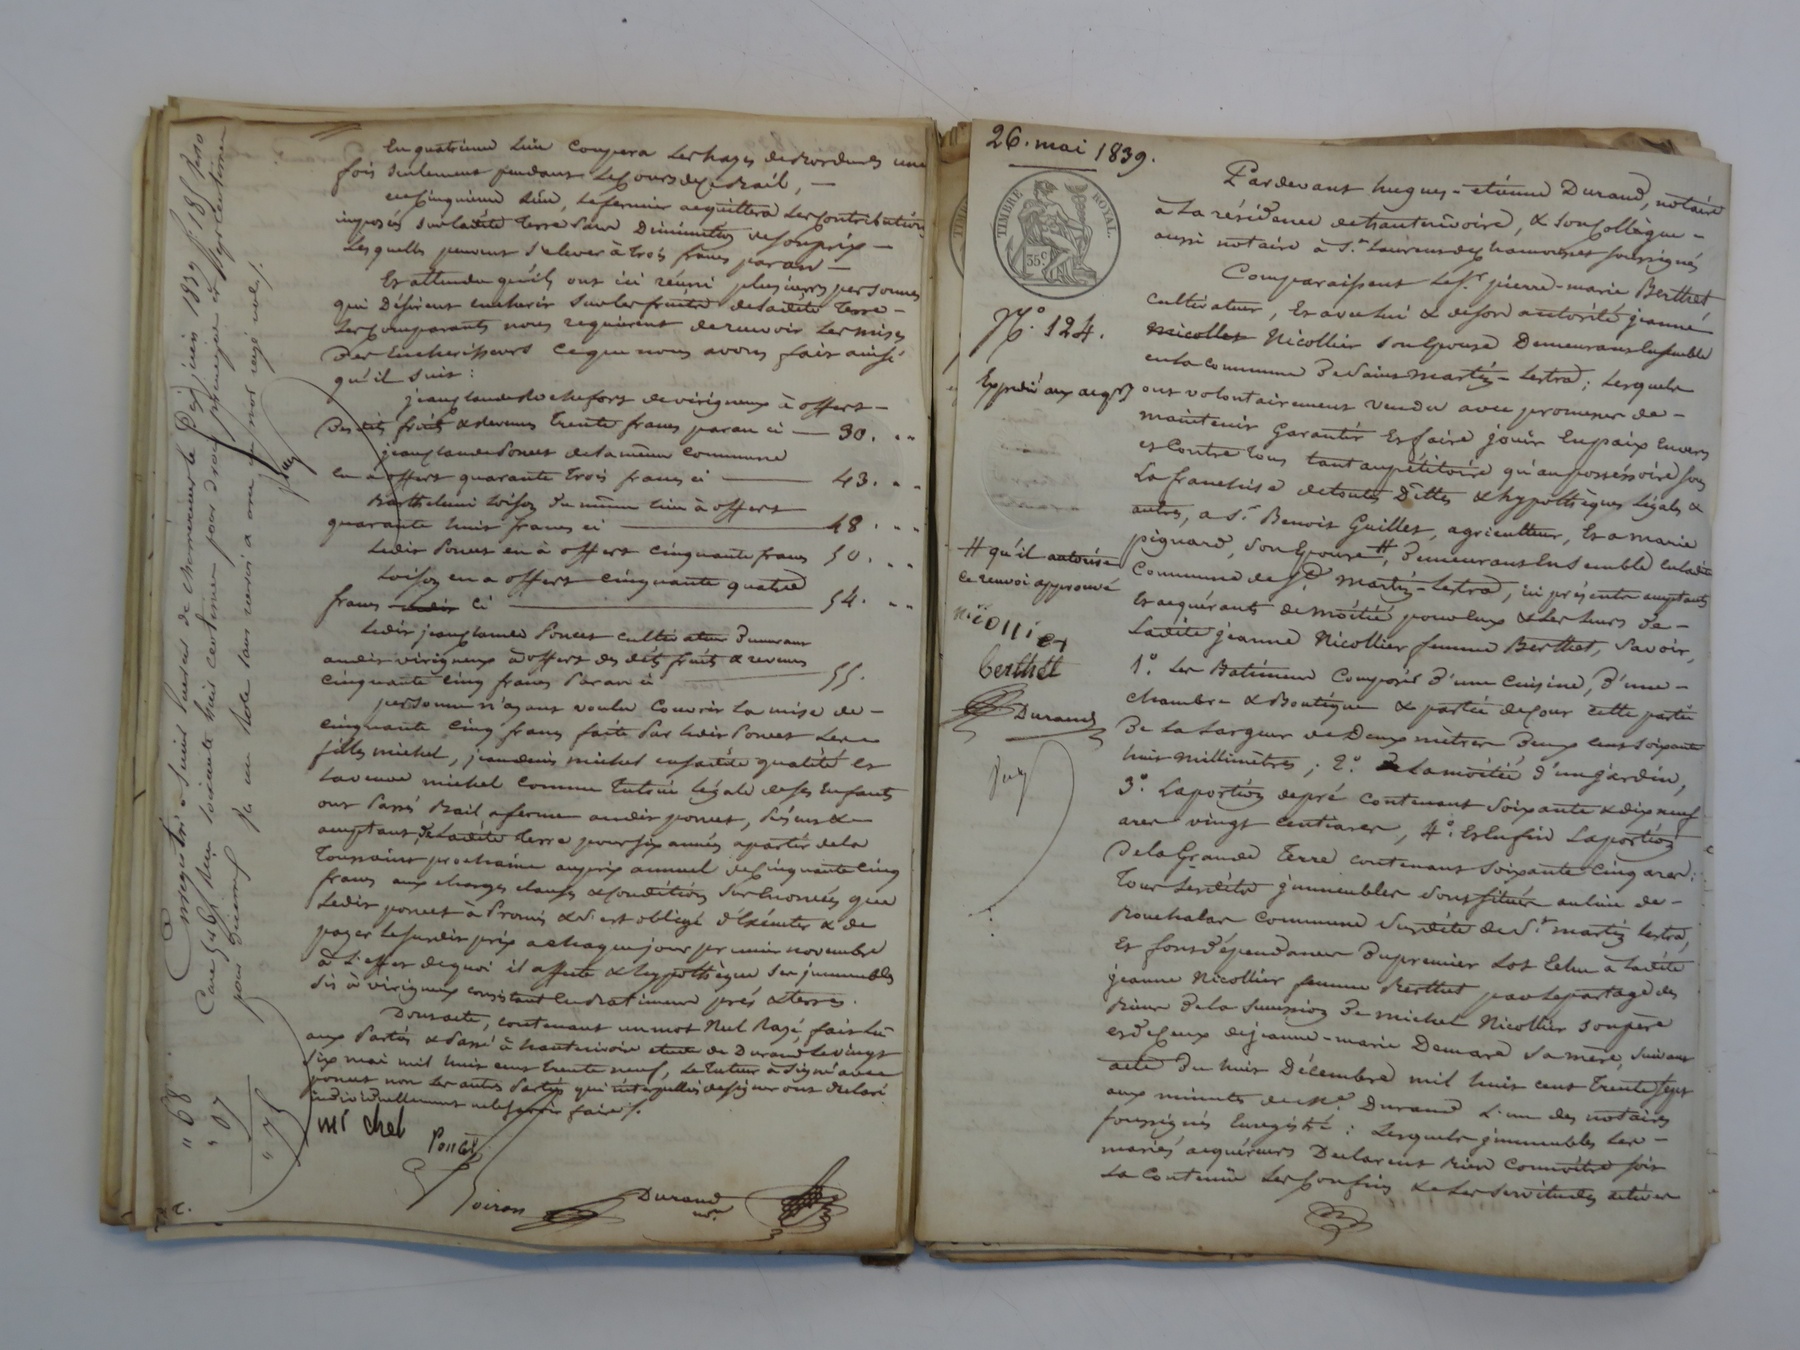 En quatrieme lieu Coupera les hayes de bordures une
fois seulement pendant le cours de ce bail, —
en Cinquieme lieu, le fermier acquittera les Contributions
imposées sur ladite terre sans diminution de son prix —
lesquelles peuvent s'elever à trois francs par an —
Et attendu qu'ils ont ici réuni plusieurs personnes
qui désirent encherir sur les fruits de ladite terre —
les Comparants nous requièrent de recevoir les mises
des Encherisseurs ce que nous avons fait ainsi
qu'il suit :
jean claude Rochefort de virigneux à offert —
des dits fruits & revenus trente francs par an ci — 30. " "
jean claude Poncet de la même commune
en a offert quarante trois francs ci — 43. " "
Barthelemi Loison du même lieu à offert
quarante huit francs ci — 48. " "
Ledit Poncet en à offert cinquante francs 50. " "
Loison en a offert cinquante quatre
francs ci — 54. " "
Ledit jean claude Poncet cultivateur demeurant
audit virigneux à offert des dits fruits & revenus
cinquante cinq francs par an ci — 55.
personne n'ayant voulu Couvrir la mise de —
cinquante cinq francs faite par ledit Poncet les
filles michel, jean denis michel en sadite qualité et
la veuve michel comme tutrice légale de ses Enfants
ont passé Bail à ferme audit poncet, présent &
acceptant, de ladite terre pour six années à partir de la
Toussaint prochaine au prix annuel de Cinquante cinq
francs aux charges clauses & conditions sus énoncées que
Ledit poncet à promis & s'est obligé d'Exécuter & de
payer le susdit prix à chaque jour premier novembre
à l'effet de quoi il affecte & hypothèque ses immeubles
sis à virigneux consistant en batiment prés & terres.
Dont acte, contenant un mot Nul Rayé, fait Lu
aux Parties & Passé à hauterivoire etude de Durand le vingt
six mai mil huit cent trente neuf, le tuteur à signé avec
poncet non les autres parties qui interpellées de signer ont declaré
individuellement ne le savoir faire /.
Mi chel
Poncet
Boiron
Durand
nre.
Enregistré à Saint
juin 1839 fo 185 verso
" 68
" 07
" 75
26. mai 1839.
TIMBRE ROYAL.
35 c
No. 124.
Expédié aux acqrs
Pardevant hugues-etienne Durand, notaire
à la résidence de hauterivoire, & son Collègue —
aussi notaire à St. Laurent de chamousset soussignés
Comparaissent le Sr. pierre-marie Berthet
cultivateur, Et avec lui & de son autorité jeanne
nicollet Nicollier son Epouse demeurant Ensemble
en la commune de Saint martin-lestra ; lesquels
ont volontairement vendu avec promesse de —
maintenir Garantir Et faire jouir En paix Envers
et Contre tous tant au pétitoire qu'au possessoire sous
La franchise de toutes Dettes & hypothèques légales &
autres, a Sr. Benoit Guillet, agriculteur, Et a marie
pignard, son Epouse #, demeurant Ensemble en ladite
Commune de St. Martin-Lestra, ici présents acceptants
Et acquérants de moitié pour Eux & les leurs de —
Ladite jeanne Nicollier femme Berthet, savoir,
# qu'il autorise
ce renvoi approuvé
nicollier
berthet
Durand
1o. Les Batiment Composés d'une Cuisine, d'une —
chambre & Boutique & partie de cour cette partie
de la largeur de deux mètres deux cent soixante
huit millimètres ; 2o. La moitié d'un jardin,
3o. La portion de pré contenant soixante & dix neuf
ares vingt centiares, 4o. Et Enfin La portion
de la Grande terre contenant soixante cinq ares :
Tous lesdits immeubles sont situés au lieu de —
Rouchalas commune susdite de St. martin lestra,
Et font dépendance du premier Lot Echu à ladite
jeanne Nicollier femme Berthet par le partage des
Biens de la succession de michel Nicollier son père
et de ceux de jeanne-marie Demare sa mère, suivant
acte du huit Décembre mil huit cent trente sept
aux minutes de Me. Durand L'un des notaires
soussignés Enregistré : Lesquels immeubles les —
mariés acquéreurs Déclarent bien Connoitre soit
La Contenue les Confins & les servitudes actives